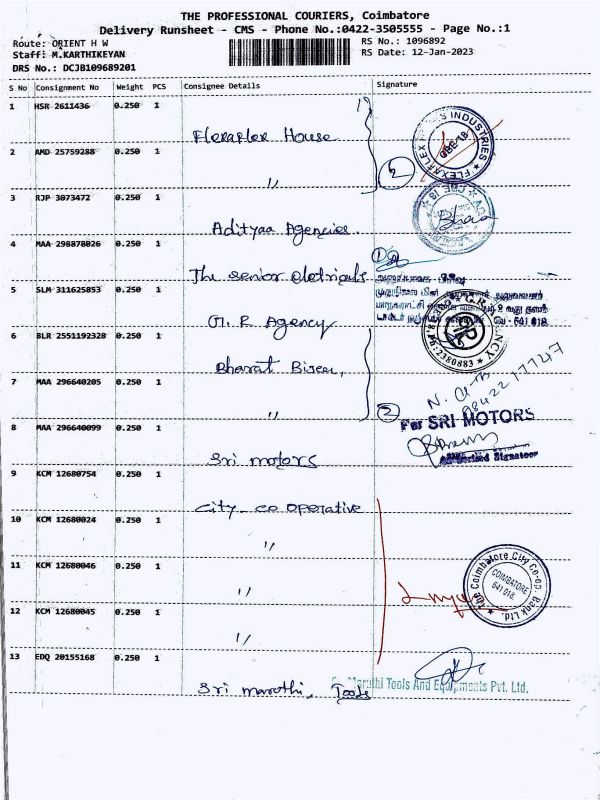 THE PROFESSIONAL COURIERS, Coimbatore
Delivery Runsheet - CMS - Phone No.:0422-3505555 - Page No.:1
Route: ORIENT H W
RS No.: 1096892
Staff: M.KARTHIKEYAN
RS Date: 12-Jan-2023
DRS No.: DCJB109689201
S No Consignment No Weight PCS Consignee Details Signature
1 HSR 2611436 0.250 1
Flexaflex House
2 AMD 25759288 0.250 1
〃
3 RJP 3073472 0.250 1
Adityaa Agencies
4 MAA 298878026 0.250 1
The senior eletricals
5 SLM 311625853 0.250 1
G. R Agency
6 BLR 2551192328 0.250 1
Bharat
7 MAA 296640205 0.250 1
〃
8 MAA 296640099 0.250 1
Sri motors
For SRI MOTORS
Authorised Signatory
9 KCM 12680754 0.250 1
City co operative
10 KCM 12680024 0.250 1
〃
11 KCM 12680046 0.250 1
〃
The Coimbatore City Co-op. Bank Ltd.
COIMBATORE
641 018.
12 KCM 12680045 0.250 1
〃
13 EDQ 20155168 0.250 1
Sri maruthi, Tools
Maruthi Tools And Equipments Pvt. Ltd.